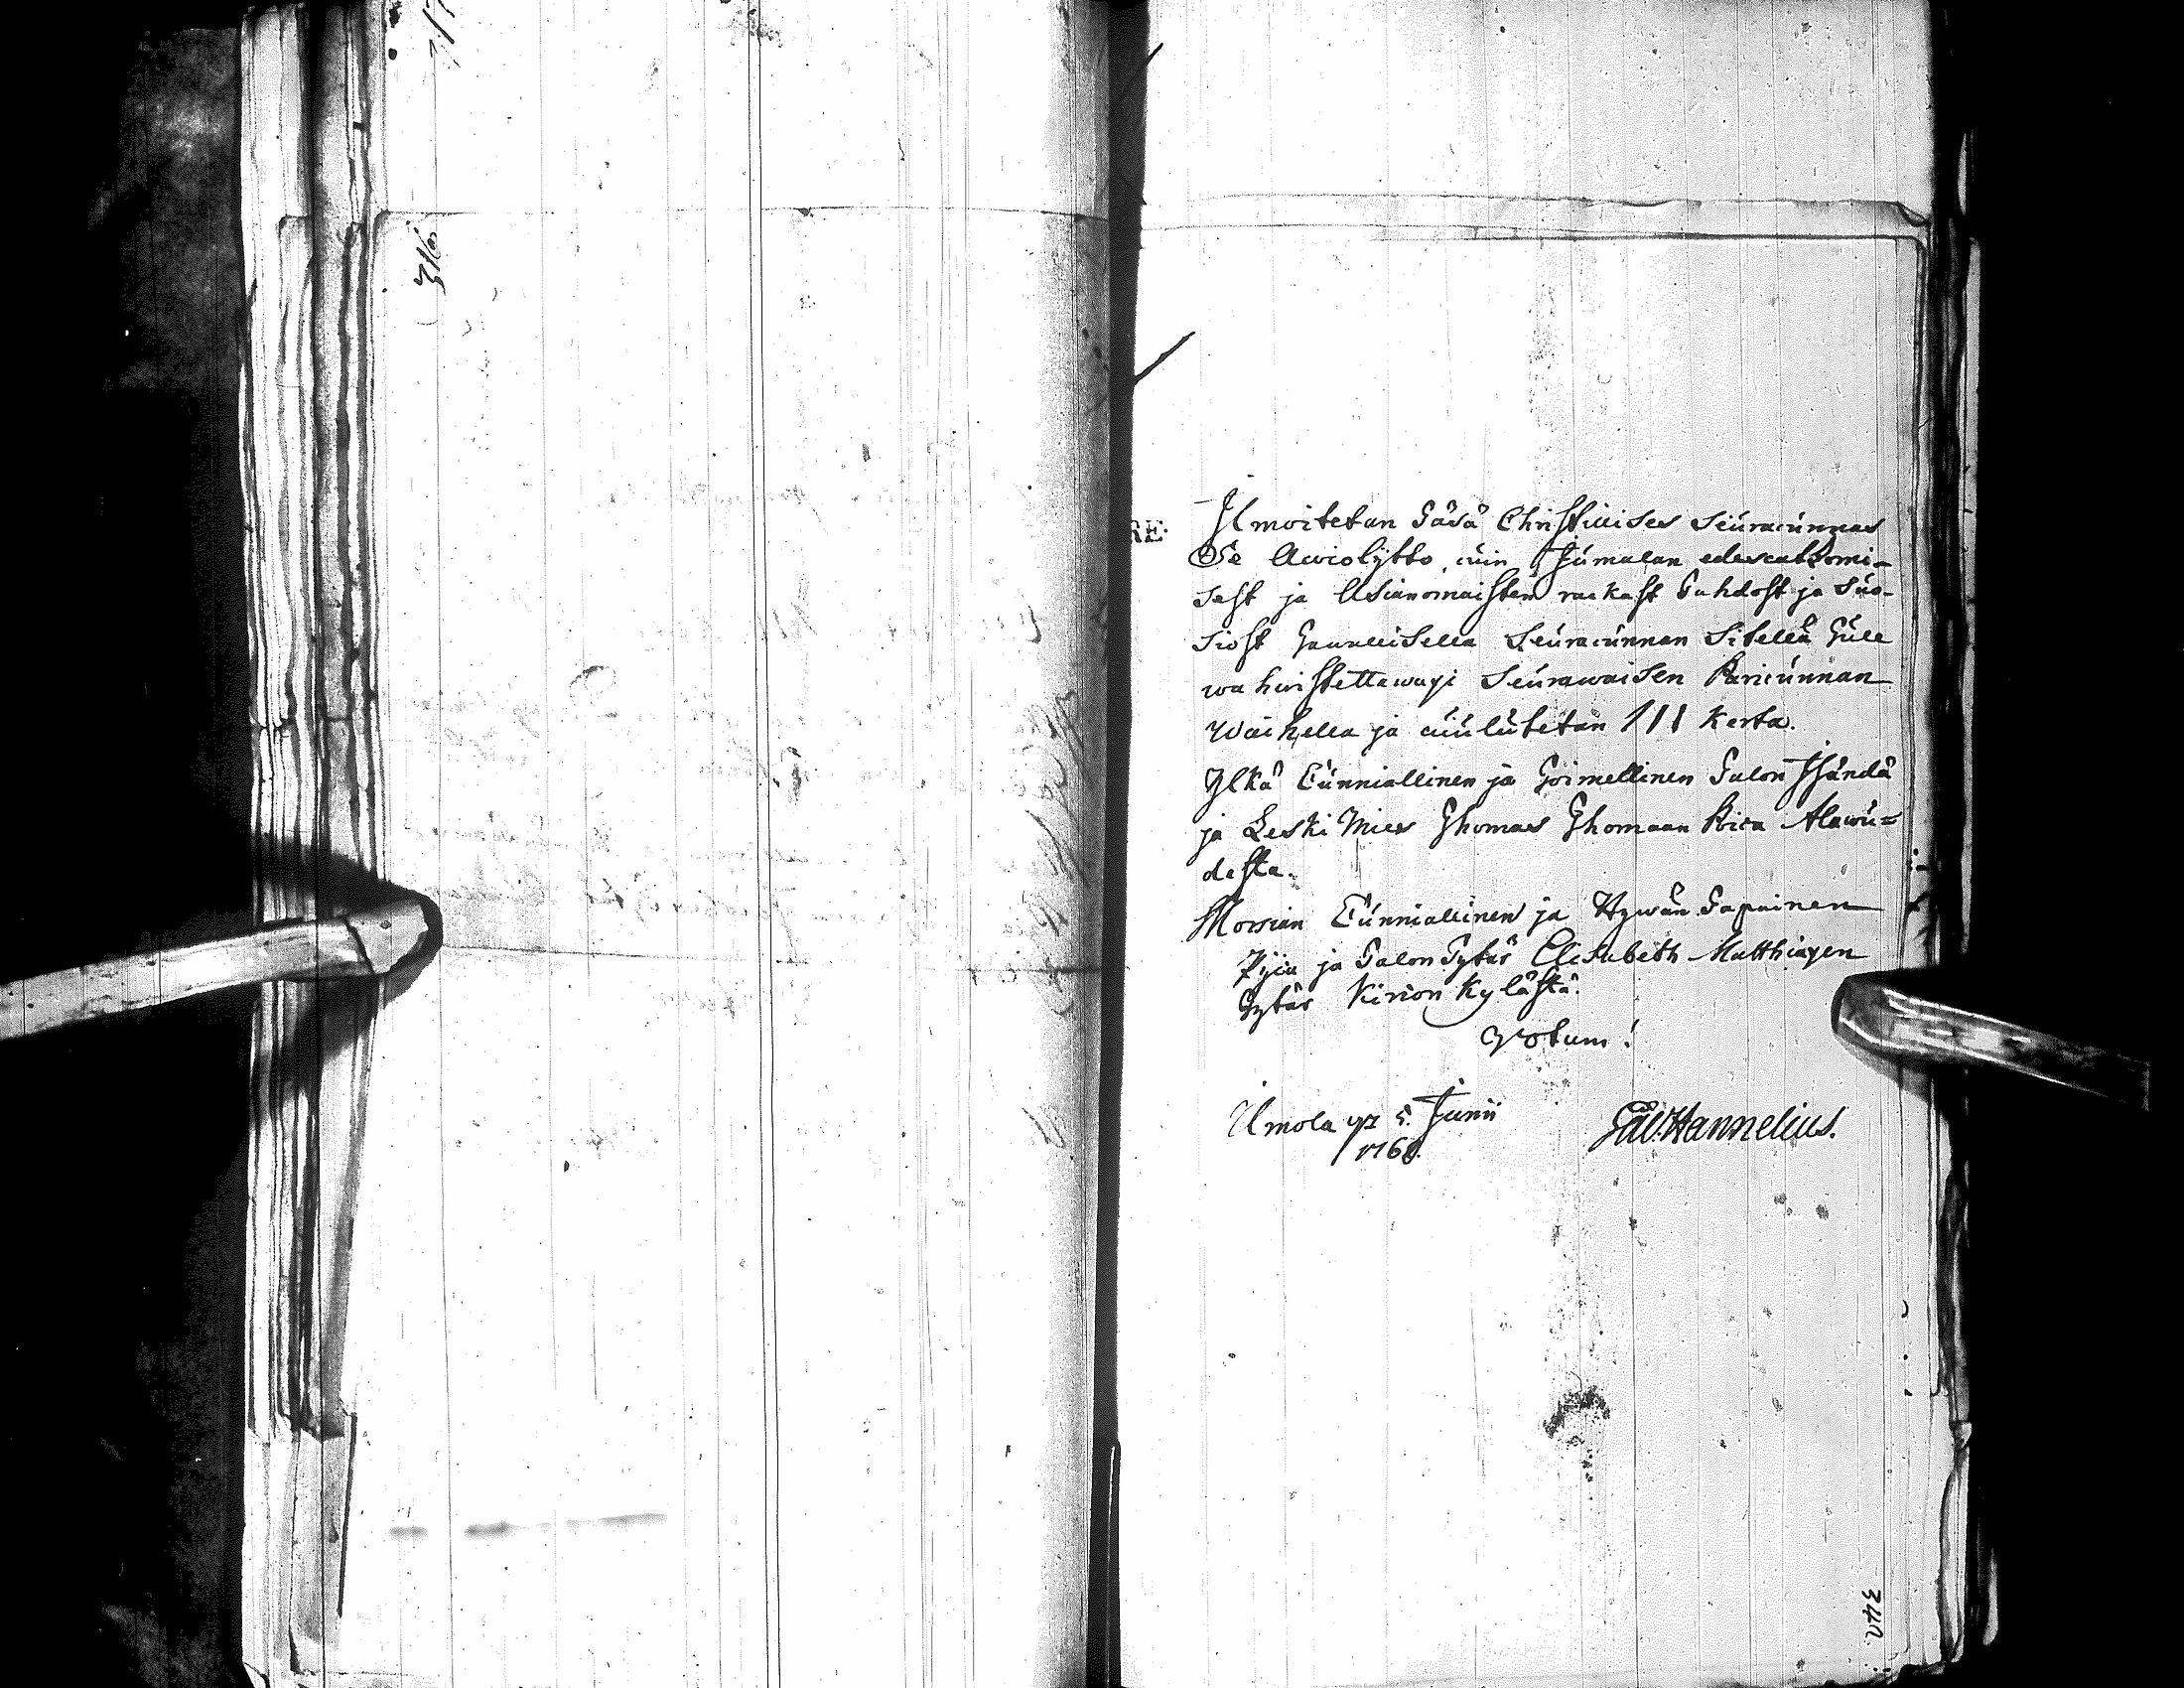 317
316
RE
Ilmoitetan Täsä Christillises Seuracunnas
Se Awiolijtto, cuin Jumalan edescatzomi-
sest ja Asianomaisten rackast Tahdost ja Suo-
siost Taunllisella Seuracunnan Sitellä Tule
wahwistettawaxi Seurawaisen Paricunnan
Wäihella ja cuulutetan III Kerta.
Ylkä Cunniallinen ja Toimellinen Talon Isändä
ja Leski Mies Thomas Thomaan Poica Alawu=
desta.
Morsian Cunniallinen ja Hywän Tapainen
Pijca ja Talon Tytär Elisabeth Matthiaxen
Tytär Kirion Kylästä.
Votum!
Ilmola yx 5. Junii
1768.
Hannelius.
342.